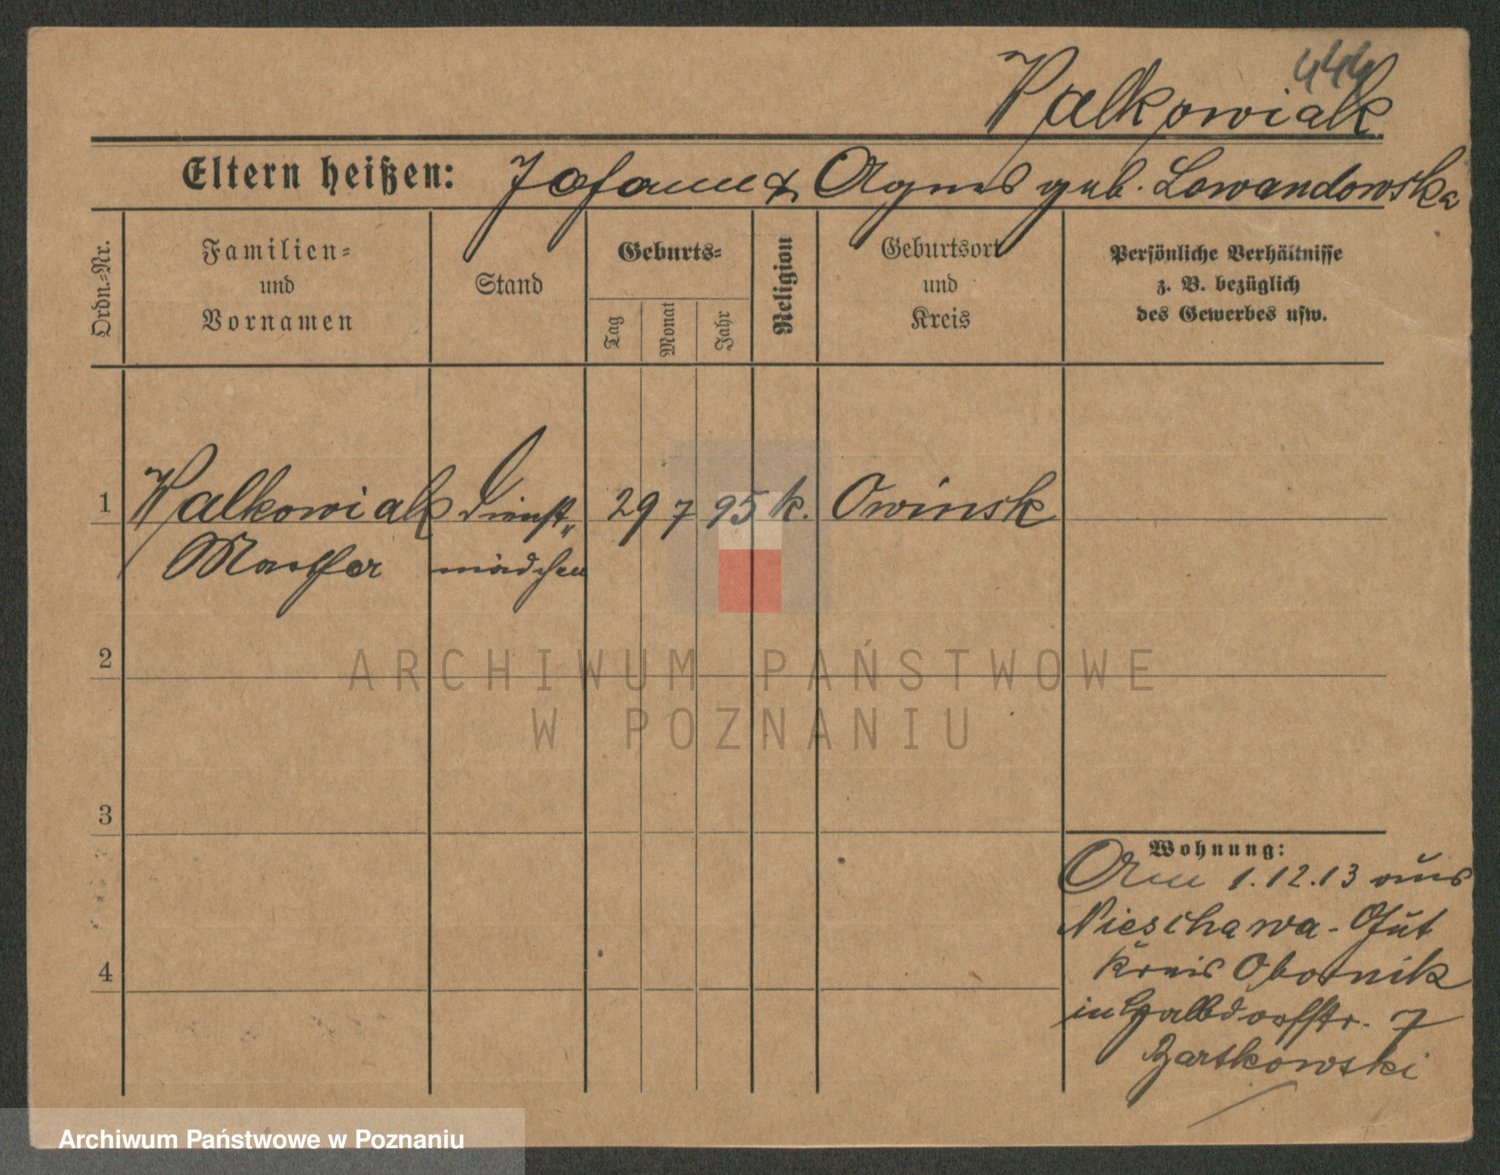 444
Walkowiak
Eltern heißen: Johann & Agnes geb. Lewandowska
Ordn.-Nr.
Familien-
und
Vornamen
Stand
Geburts-
Tag
Monat
Jahr
Religion
Geburtsort
und
Kreis
Persönliche Verhältnisse
z. B. bezüglich
des Gewerbes usw.
1 Walkowiak Dienst- 29 7 95 k. Owinsk
mädchen
2
3
4
Wohnung:
Am 1.12.13 aus
Nieschawa-Gut
Kreis Obornik
in Halbdorfstr. 7
Bartkowski
ARCHIWUM PAŃSTWOWE
W POZNANIU
Archiwum Państwowe w Poznaniu